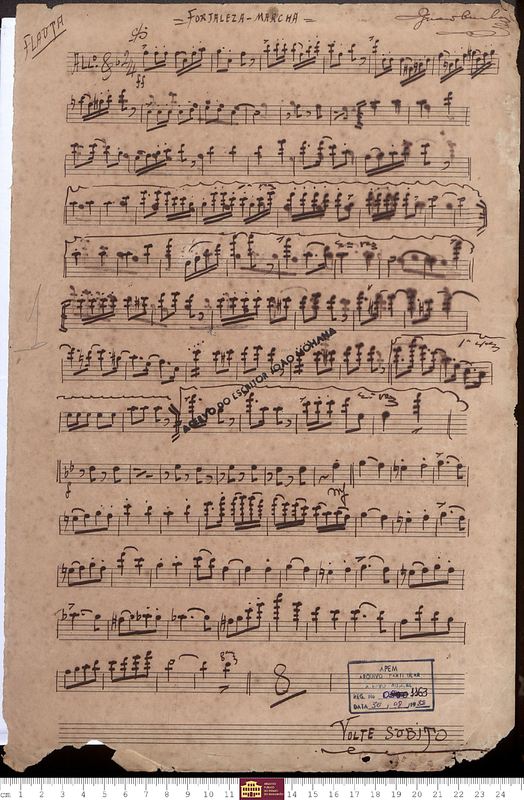 = FORTALEZA - MARCHA =
FLAUTA
ALLº 2/4
ff
1ª vez
2ª vez
ACERVO DO ESCRITOR JOÃO MOHANA
f
8
APEM
ARQUIVO PARTITURA
REG. No 1163
DATA 30, 08, 1988
VOLTE SUBITO
cm 1 2 3 4 5 6 7 8 9 10 11 14 15 16 17 18 19 20 21 22 23 24